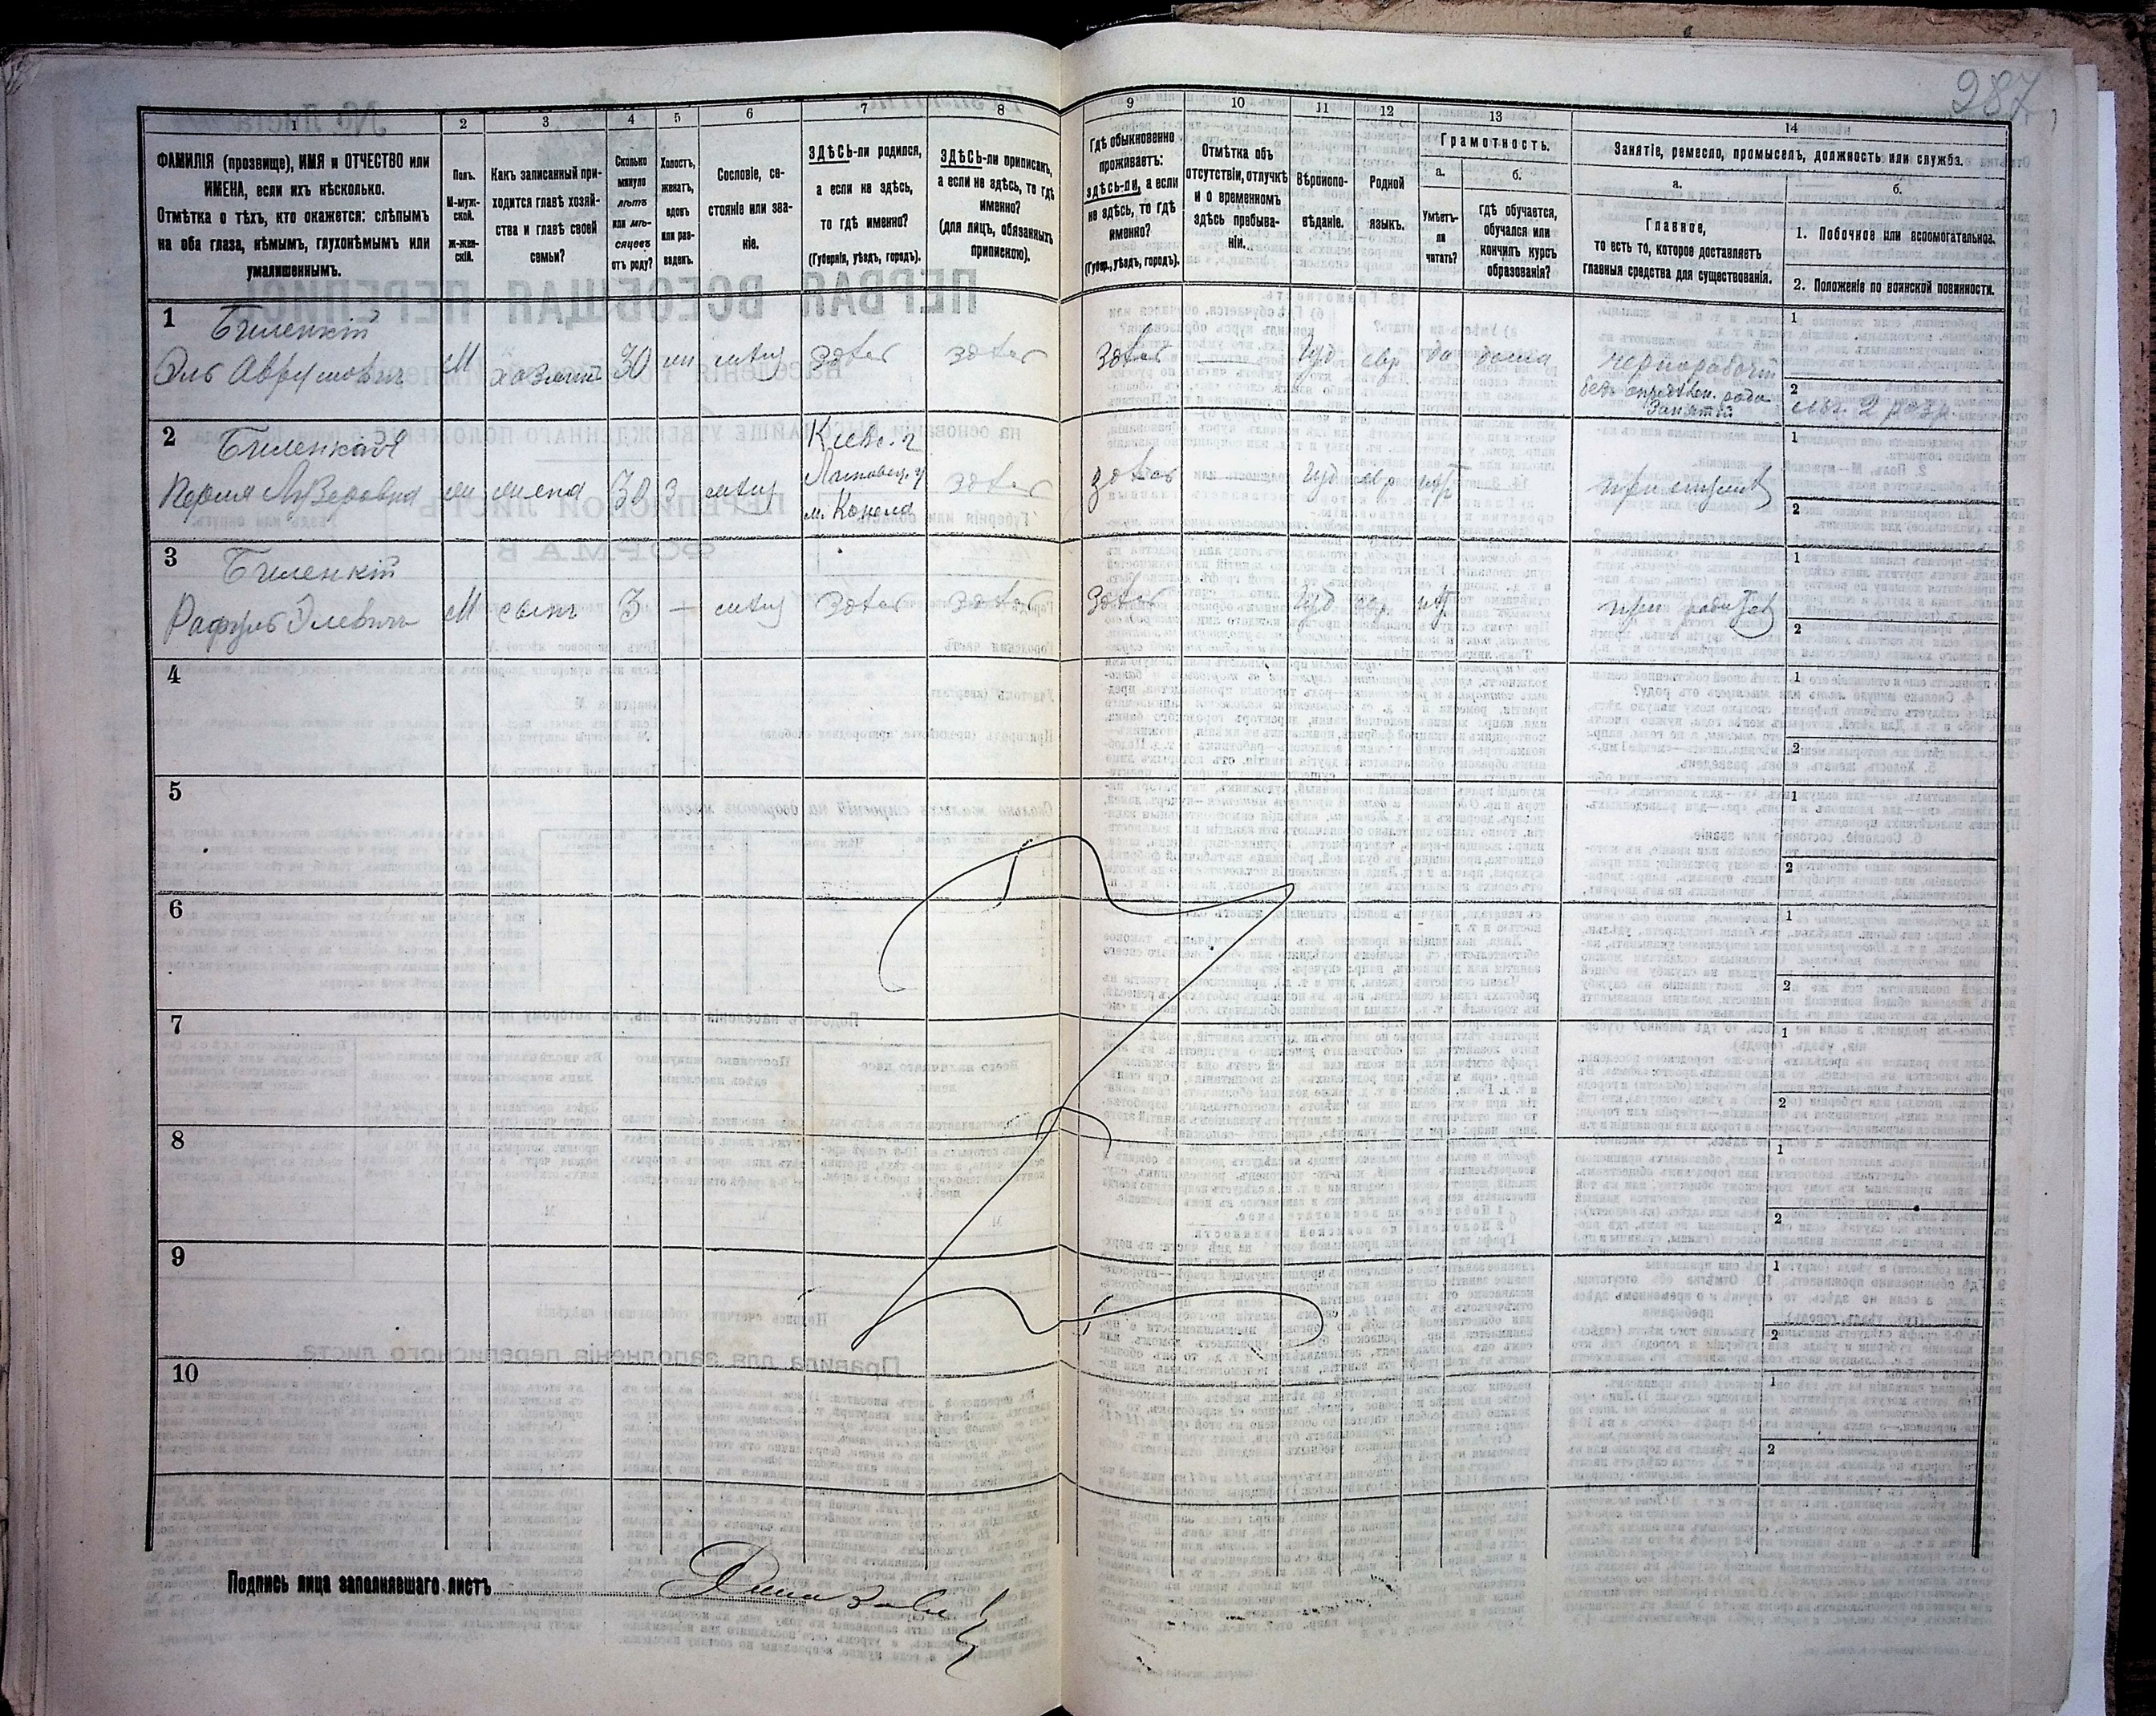 287
1
2
3
4
5
6
7
8
9
10
11
12
13
14
ФАМИЛІЯ (прозвище), ИМЯ и ОТЧЕСТВО или
ИМЕНА, если ихъ нѣсколько.
Отмѣтка о тѣхъ, кто окажется: слѣпымъ
на оба глаза, нѣмымъ, глухонѣмымъ или
умалишеннымъ.
Полъ.
М-муж-
ской.
Ж-жен-
скій.
Какъ записанный при-
ходится главѣ хозяй-
ства и главѣ своей
семьи?
Сколько
минуло
лѣтъ
или мѣ-
сяцевъ
отъ роду?
Холостъ,
женатъ,
вдовъ
или раз-
веденъ.
Сословіе, со-
стояніе или зва-
ніе.
ЗДѢСЬ-ли родился,
а если не здѣсь,
то гдѣ именно?
(Губернія, уѣздъ, городъ).
ЗДѢСЬ-ли приписанъ,
а если не здѣсь, то гдѣ
именно?
(для лицъ, обязанныхъ
припискою).
Гдѣ обыкновенно
проживаетъ:
здѣсь-ли, а если
не здѣсь, то гдѣ
именно?
(Губер., уѣздъ, городъ).
Отмѣтка объ
отсутствіи, отлучкѣ
и о временномъ
здѣсь пребыва-
ніи.
Вѣроиспо-
вѣданіе.
Родной
языкъ.
Грамотность.
а.
б.
Умѣетъ-
ли
читать?
гдѣ обучается,
обучался или
кончилъ курсъ
образованія?
Занятіе, ремесло, промыселъ, должность или служба.
а.
б.
Главное,
то есть то, которое доставляетъ
главныя средства для существованія.
1. Побочное или вспомогательное.
2. Положеніе по воинской повинности.
1
Биленкій
Эль Аврумовичъ
М
хозяинъ
30
жн
мѣщ
здѣсь
здѣсь
здѣсь
—
Іуд
евр
да
дома
чернорабочій
безъ опредѣлен. рода
занятій
1
2
2 разр.
2
Биленкая
Перля Лузеровна
ж
жена
30
з
мѣщ
Кіевс. г
Липовец. у
м. Конела
здѣсь
здѣсь
Іуд
евр
нѣтъ
при мужѣ
1
2
3
Биленкій
Рафуль Элевичъ
М
сынъ
3
—
мѣщ
здѣсь
здѣсь
здѣсь
Іуд
евр.
нѣтъ
при
1
2
4
1
2
5
1
2
6
1
2
7
1
2
8
1
2
9
1
2
10
1
2
Подпись лица заполнявшаго листъ